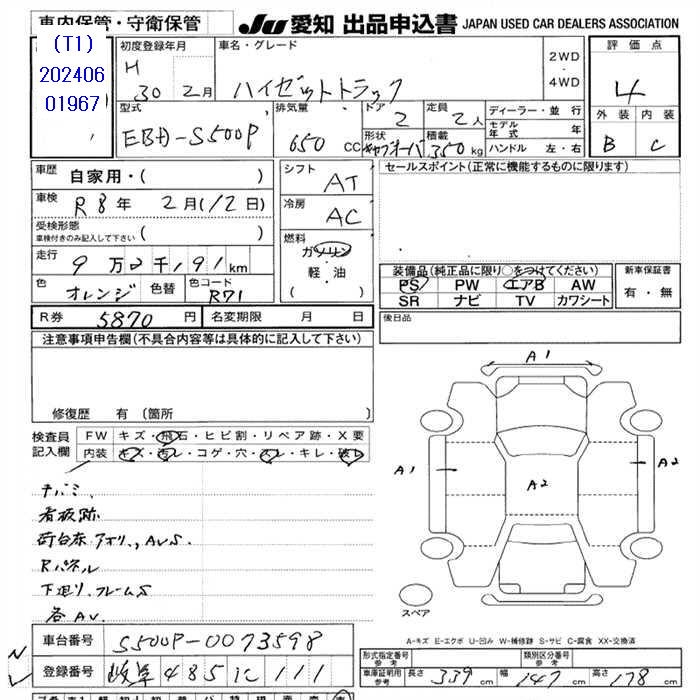 車内保管・守衛保管
JU 愛知 出品申込書 JAPAN USED CAR DEALERS ASSOCIATION
(T1)
202406
01967
初度登録年月
H 30 2月
車名・グレード
ハイゼットトラック
2WD
・
4WD
評価点
4
外装 内装
B C
型式
EBD-S500P
排気量
650 CC
ドア
2
定員
2人
形状
積載
350kg
ディーラー・並行
モデル年式 年
ハンドル 左・右
車歴 自家用・( )
車検 R8年 2月(12日)
受検形態
車検付きのみ記入して下さい ( )
走行 9万2千191km
色 オレンジ 色替 色コード R71
シフト
AT
冷房
AC
燃料
ガソリン
軽・油
( )
セールスポイント(正常に機能するものに限ります)
装備品(純正品に限り○をつけてください)
PS PW エアB AW
SR ナビ TV カワシート
新車保証書
有・無
後日品
R券 5870円 名変期限 月 日
注意事項申告欄(不具合内容等は具体的に記入して下さい)
修復歴 有(箇所 )
検査員記入欄
FW キズ・飛石・ヒビ割・リペア跡・X要
内装 キズ・汚レ・コゲ・穴・スレ・キレ・破レ
看板跡
荷台赤アオリ、AUS
Rパネル
下廻り、フレームS
各AU
A1
A1
A2
A2
スペア
A-キズ E-エクボ U-凹み W-補修跡 S-サビ C-腐食 XX-交換済
車台番号 S500P-0073598
登録番号 岐阜 485 に 111
形式指定番号 参考
類別区分番号 参考
車庫証明用参考 長さ 339cm 幅 147cm 高さ 178cm